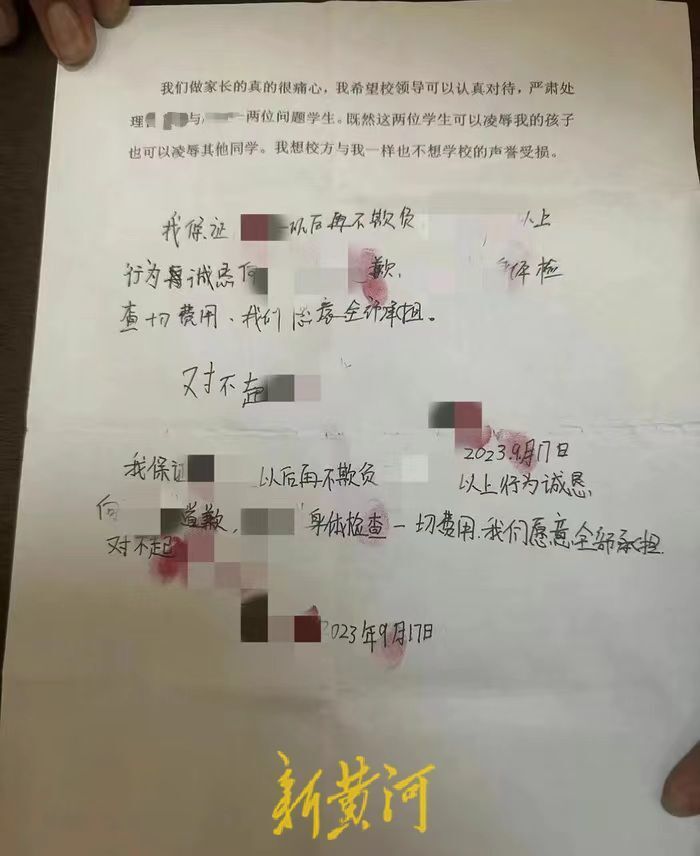 我们做家长的真的很痛心，我希望校领导可以认真对待，严肃处
理与一两位问题学生。既然这两位学生可以凌辱我的孩子
也可以凌辱其他同学。我想校方与我一样也不想学校的声誉受损。
我保证 以后再不欺负 以上
行为 诚恳向 歉, 体检
查一切费用、我们愿意全部承担。
对不起
2023.9月17日
我保证 以后再不欺负 以上行为诚恳
向 道歉, 身体检查一切费用、我们愿意全部承担.
对不起
2023年9月17日
新黄河